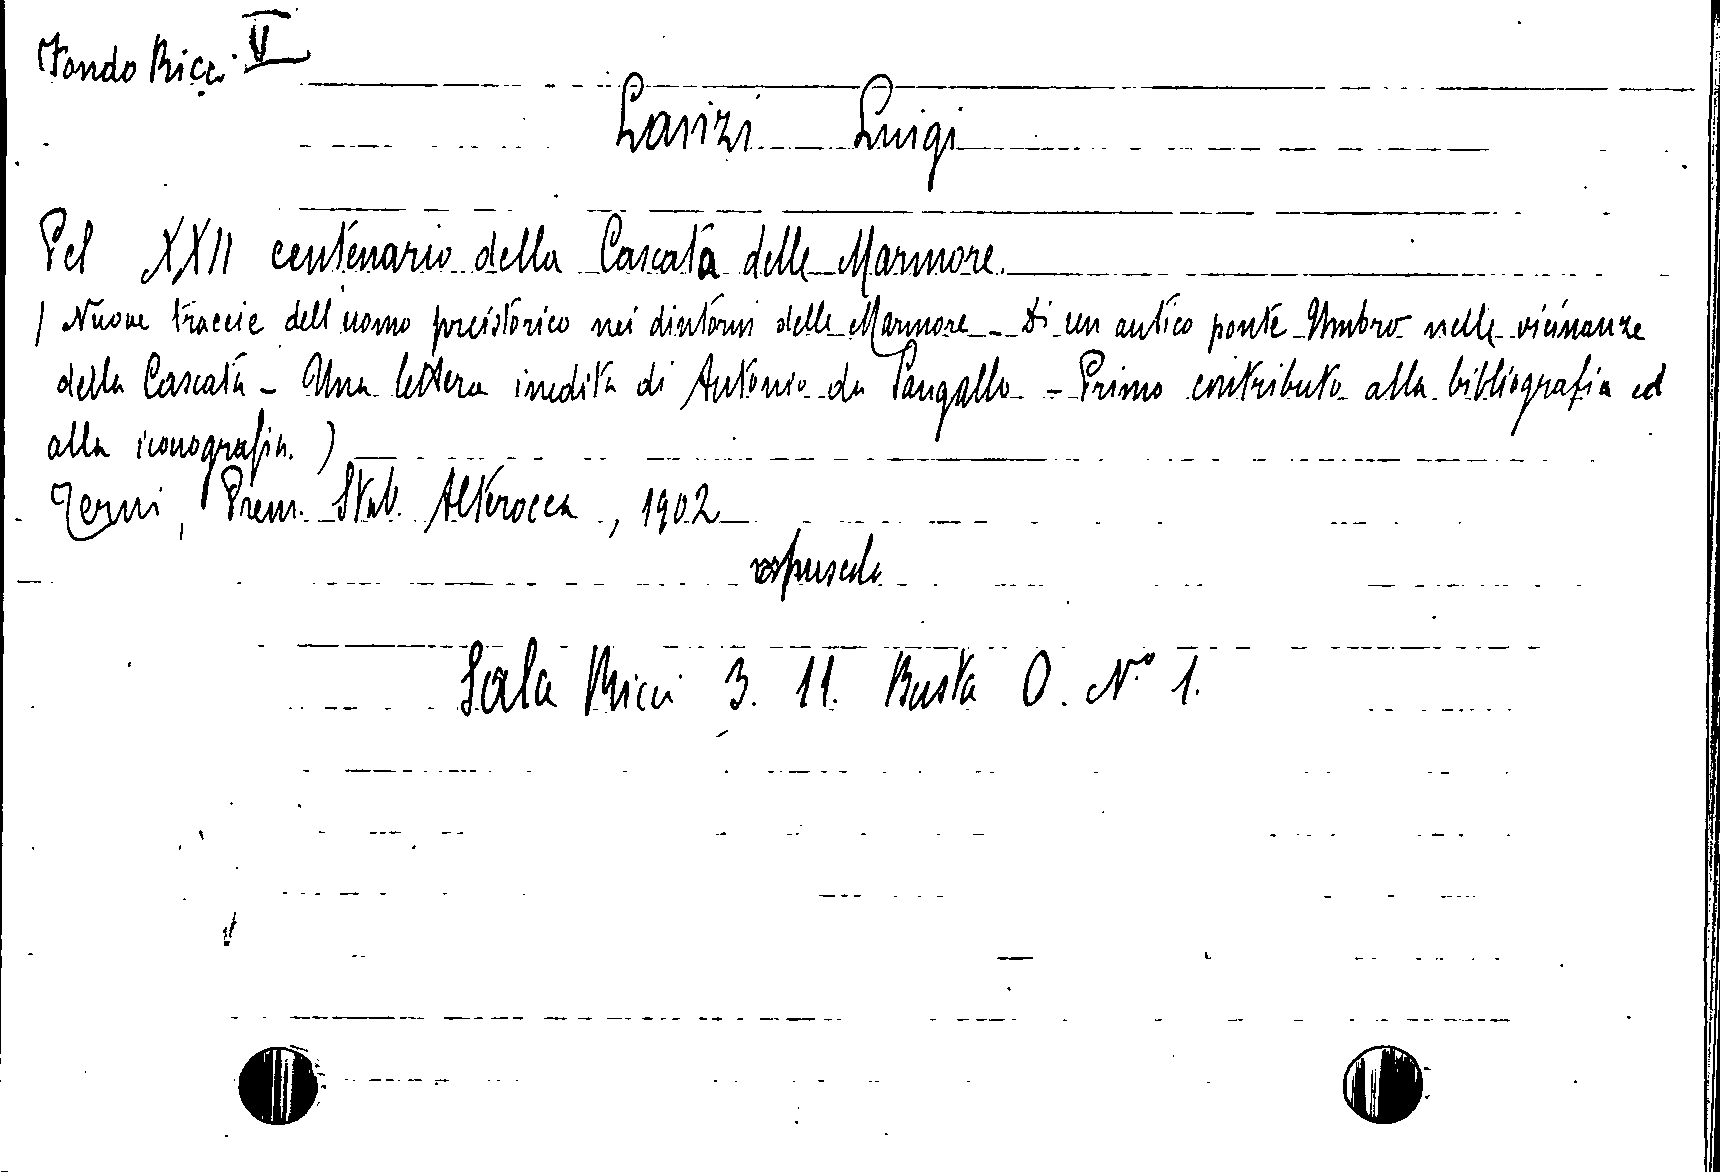 Fondo Ricci V
Lanzi Luigi
Pel XXII centenario della Cascata delle Marmore.
(Nuove traccie dell'uomo preistorico nei dintorni delle Marmore - Di un antico ponte Umbro nelle vicinanze
della Cascata - Una lettera inedita di Antonio da Sangallo - Primo contributo alla bibliografia ed
alla iconografia.)
Terni, Prem. Stab. Alterocca, 1902
opuscolo
Sala Ricci 3. 11. Busta O. N.° 1.